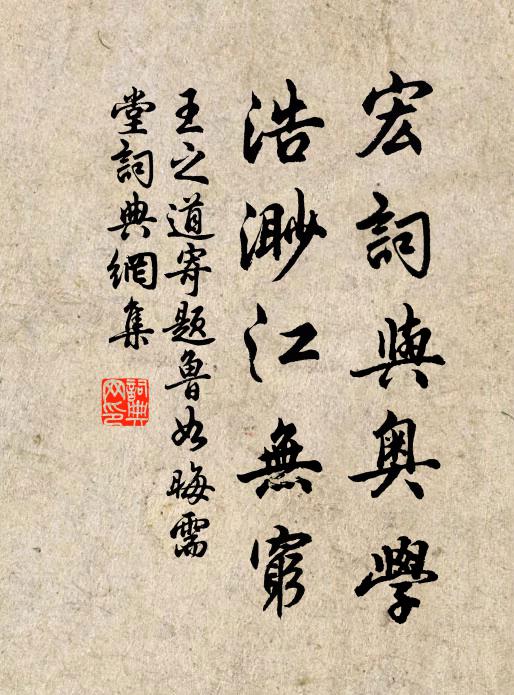 宏詞與奧學
浩渺江無窮
王之道寄題魯如晦需
堂詞典網集
詞典網印